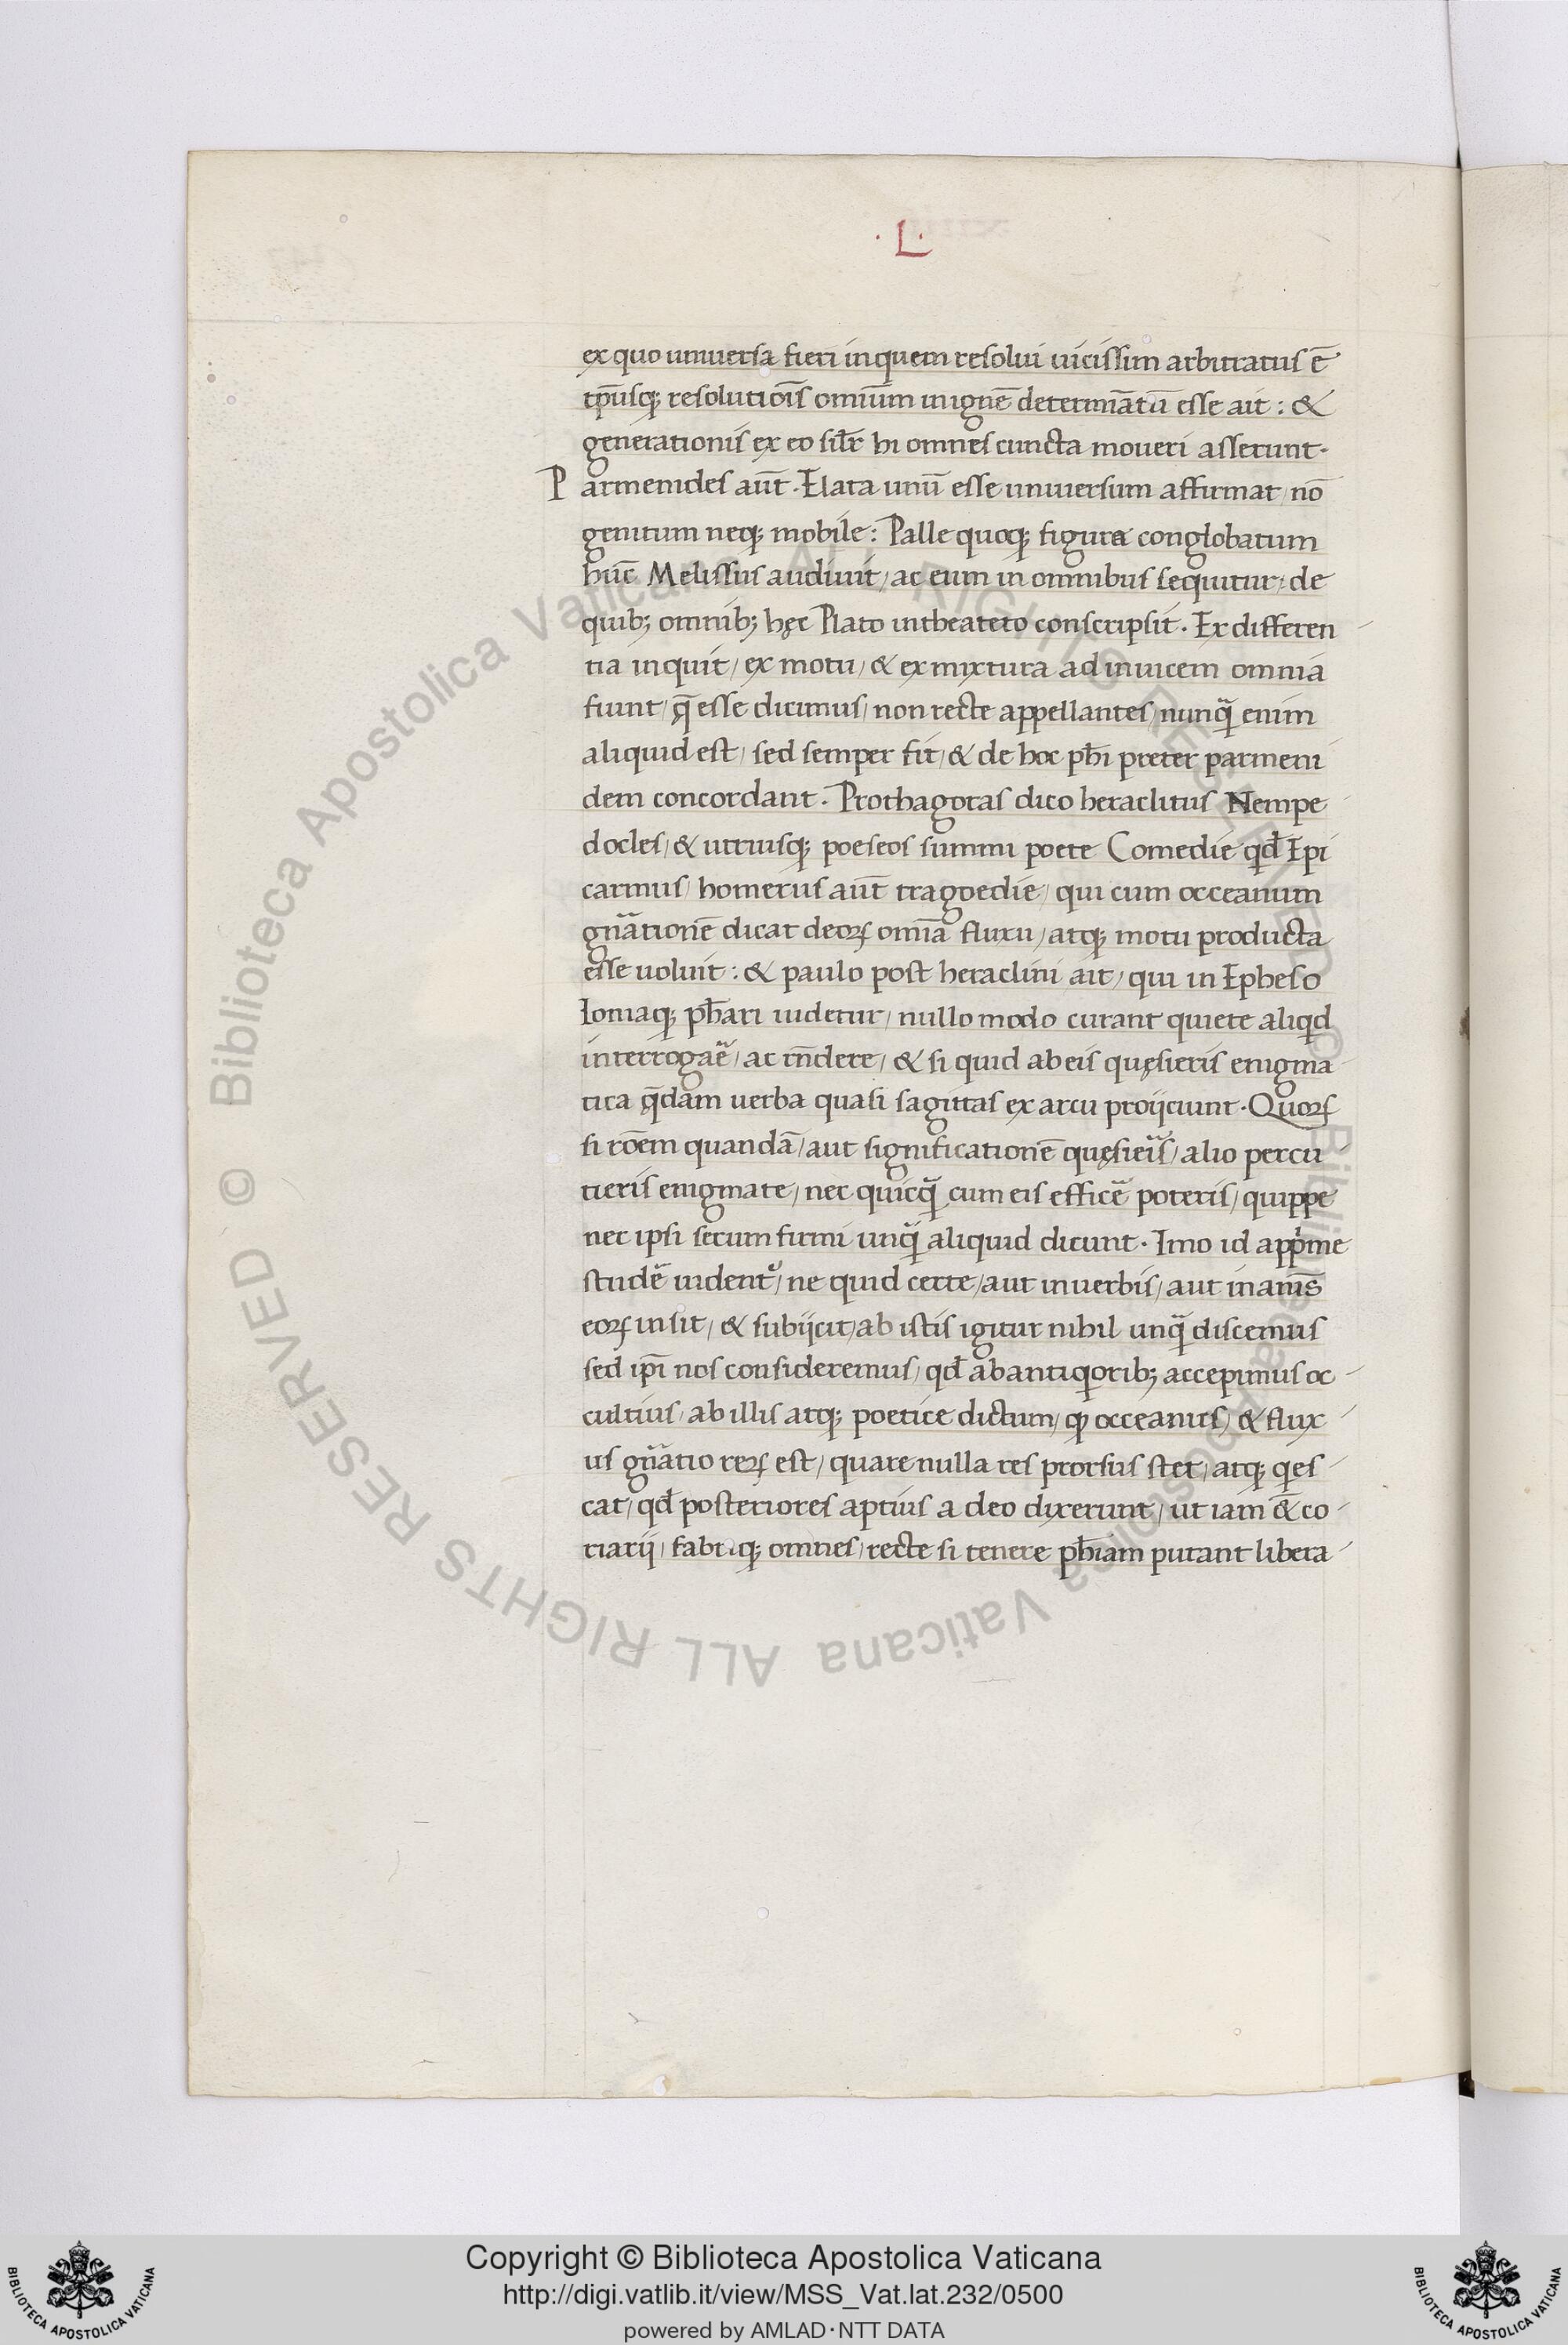 ·L·
ex quo uniuersa fieri in quem resolui uicissim arbitratus ē
tp̄usq; resolutiōis omīum in ignē determīatū esse ait : &
generationis ex eo silr̄ hi omnes cuncta moueri asserunt·
Parmenides aūt · Elata unū esse uniuersum affirmat / nō
genitum neq; mobile : Palle quoq; figura conglobatum
hūc Melissus audiuit / ac eum in omnibus sequitur / de
quib; omnib; hęc Plato in theateto conscripsit · Ex differen
tia inquit / ex motu / & ex mixtura ad inuicem omnia
fiunt / q̄ esse dicimus / non recte appellantes / nunq̃ enim
aliquid est / sed semper fit / & de hoc phi̅ preter parmeni
dem concordant · Prothagoras dico heraclitus Nempe
docles / & utriusq; poeseos summi poete Comedie qd̄ Epi
carmus / homerus aūt tragoedie / qui cum occeanum
gn̄ationē dicat deoꝝ omīa fluxu / atq; motu producta
esse uoluit : & paulo post heraclini ait / qui in Epheso
Ioniaq; ph̄ari uidetur / nullo modo curant quiete aliqd
interrogaē / ac rn̄dere / & si quid ab eis quęsieris enigma
tica q̄dam uerba quasi sagittas ex arcu proijciunt · Quoꝝ
si rōem quandā / aut significationē quęsieis̃ / alio percu
tieris enigmate / nec quicq̃ cum eis efficē poteris / quippe
nec ipsi secum firmi unq̃ aliquid dicunt · Imo id app̍me
studē uident᷑ / ne quid certe / aut in uerbis / aut in anīs
eoꝝ insit / & subijcit / ab istis igitur nihil unq̃ discemus
sed ip̄i nos consideremus / qd̄ ab antiq̍orib; accepimus oc
cultius / ab illis atq; poetice dictum / ꝙ occeanus / & flux
us gn̄atio reꝝ est / quare nulla res prorsus stet / atq; q̍es
cat / qd̄ posteriores aptius a deo dixerunt / ut iam &̄ co
riarij / fabriq; omnes / recte si tenere ph̄iam putant libera
© Biblioteca Apostolica Vaticana ALL RIGHTS RESERVED © Biblioteca Apostolica Vaticana ALL RIGHTS RESERVED
Copyright © Biblioteca Apostolica Vaticana
http://digi.vatlib.it/view/MSS_Vat.lat.232/0500
powered by AMLAD·NTT DATA
BIBLIOTECA APOSTOLICA VATICANA
BIBLIOTECA APOSTOLICA VATICANA